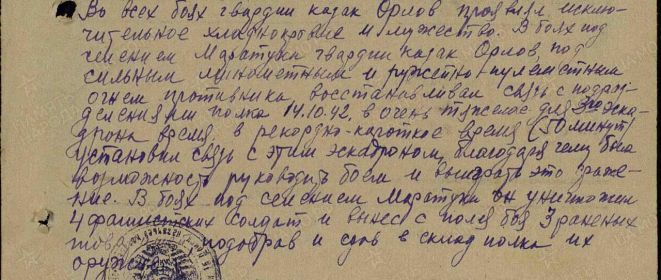 Во всех боях гвардии казак Орлов проявлял исклю-
чительное хладнокровие и мужество. В боях под
селением Маратуки гвардии казак Орлов под
сильным минометным и ружейно-пулеметным
огнем противника восстанавливал связь с подраз-
делениями полка 14.10.42. в очень тяжелое для 3го эска-
дрона время, в рекордно-короткое время (50 минут)
установил связь с этим эскадроном, благодаря чему была
возможность руководить боем и выиграть это сраже-
ние. В боях под селением Маратуки он уничтожил
4 фашистских солдат и вынес с поля боя 3 раненых
подобрав и сдав в склад полка их